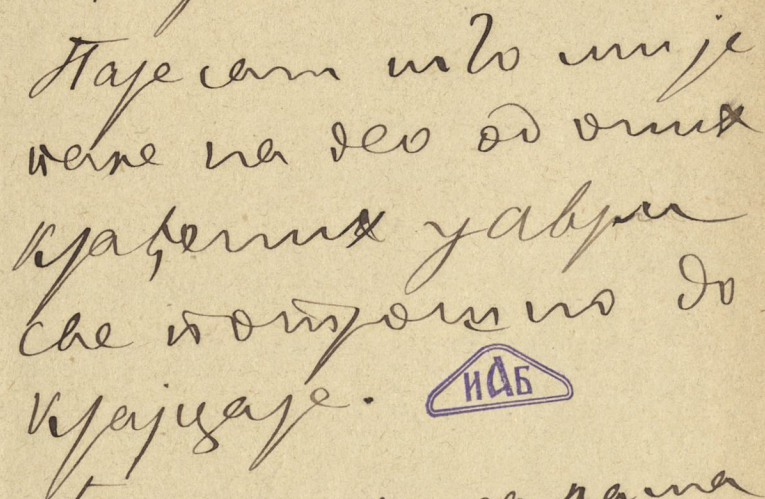 Паре сам што ми је
пале на део од оних
крађених у аври
све потрошио до
крајцаре.
ИАБ